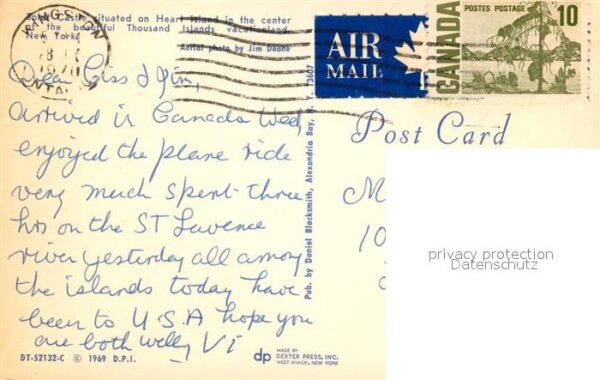 Boldt Castle situated on Heart Island in the center
of the beautiful Thousand Islands vacationland,
New York.
Aerial photo by Jim Doane
KINGSTON
ONTARIO
AIR
MAIL
CANADA
POSTES POSTAGE
10
Dear Ciss & Jim,
arrived in Canada Wed,
enjoyed the plane ride
very much spent three
hrs on the ST Lawrence
river yesterday all among
the islands today have
been to U.S.A hope you
are both well, Vi
Post Card
M
10
Pub. by Daniel Blacksmith, Alexandria Bay, N. Y. 13607
privacy protection
Datenschutz
DT-52132-C © 1969 D.P.I.
dp MADE BY
DEXTER PRESS, INC.
WEST NYACK, NEW YORK